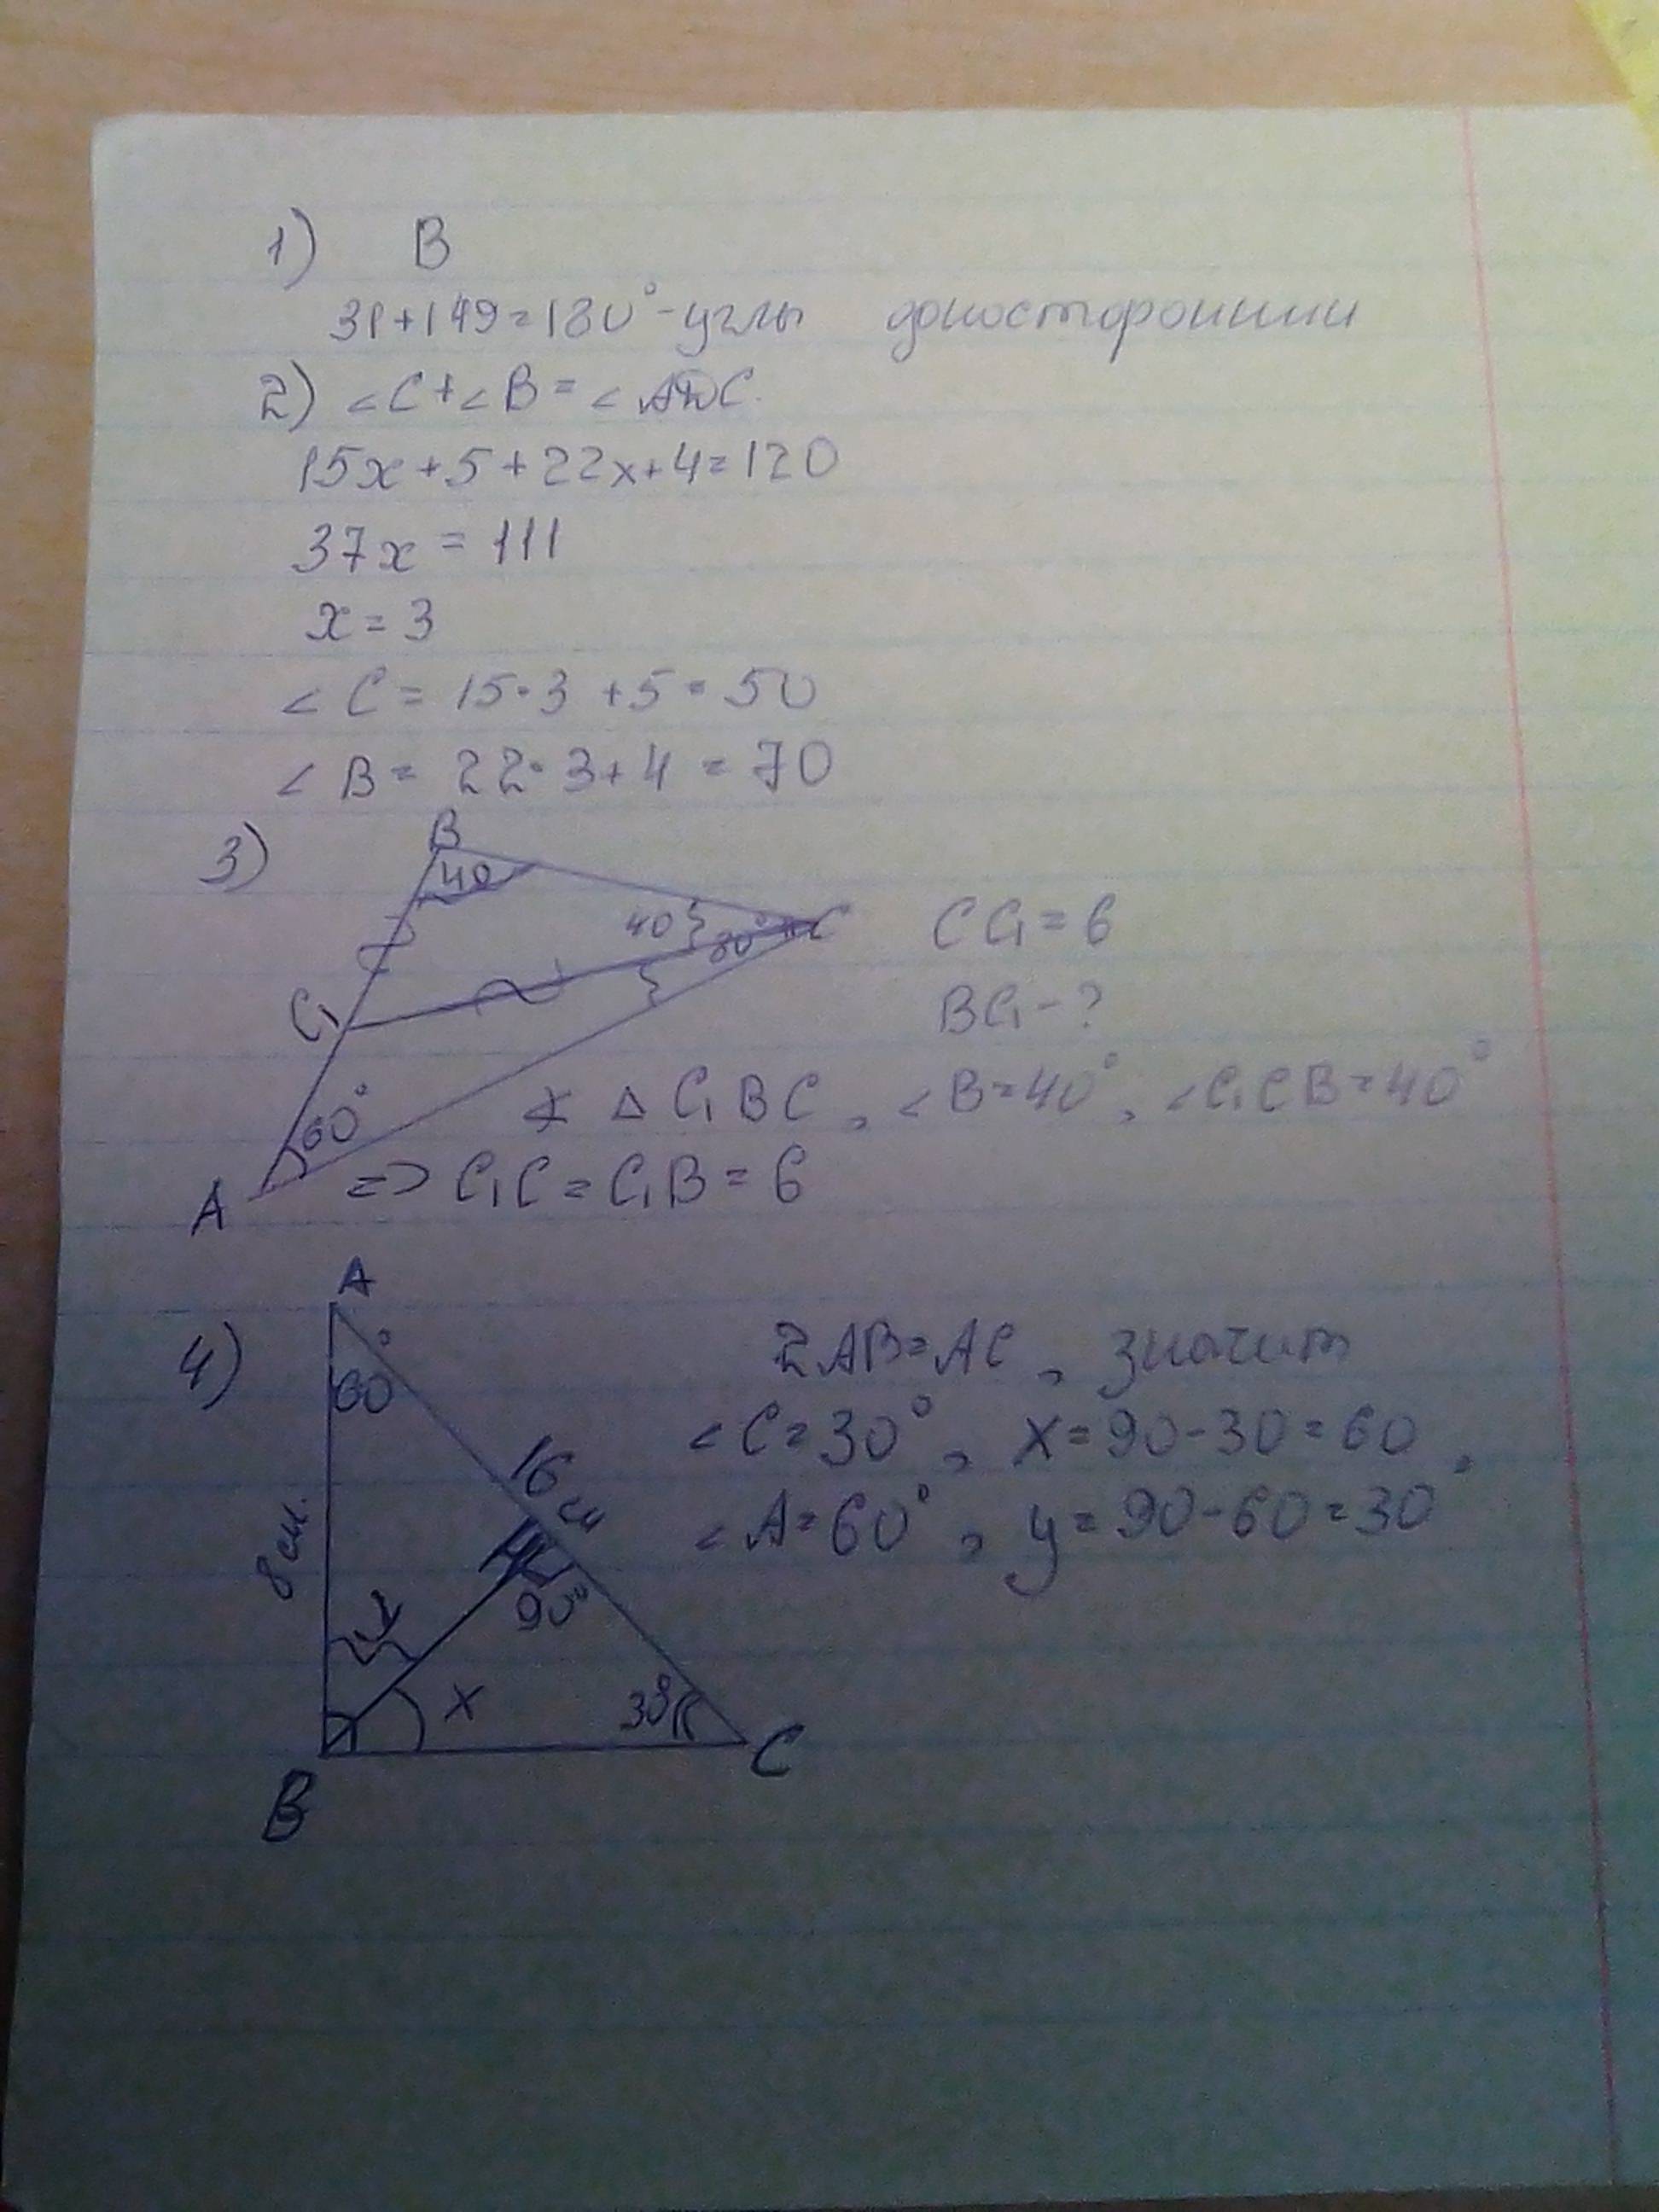 1) В
31+149=180°-углы доносторонние
2) ∠C+∠B=∠ADC.
15x+5+22x+4=120
37x=111
x=3
∠C=15·3+5=50
∠B=22·3+4=70
3)
B
40
40
80°
C
C₁
60°
A
CC₁=6
BC₁-?
△C₁BC, ∠B=40°, ∠C₁CB=40°
=> C₁C=C₁B=6
4)
A
60°
16 см
8 см.
90°
y
x
30°
B
C
2AB=AC, значит
∠C=30°, x=90-30=60,
∠A=60°, y=90-60=30°